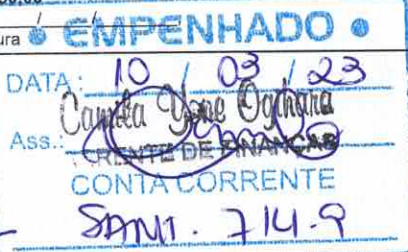 ura EMPENHADO
DATA: 10 / 03 / 23
Camila Yone Ogihara
Ass.:
GERENTE DE FINANÇAS
CONTA CORRENTE
SANT. 714-9